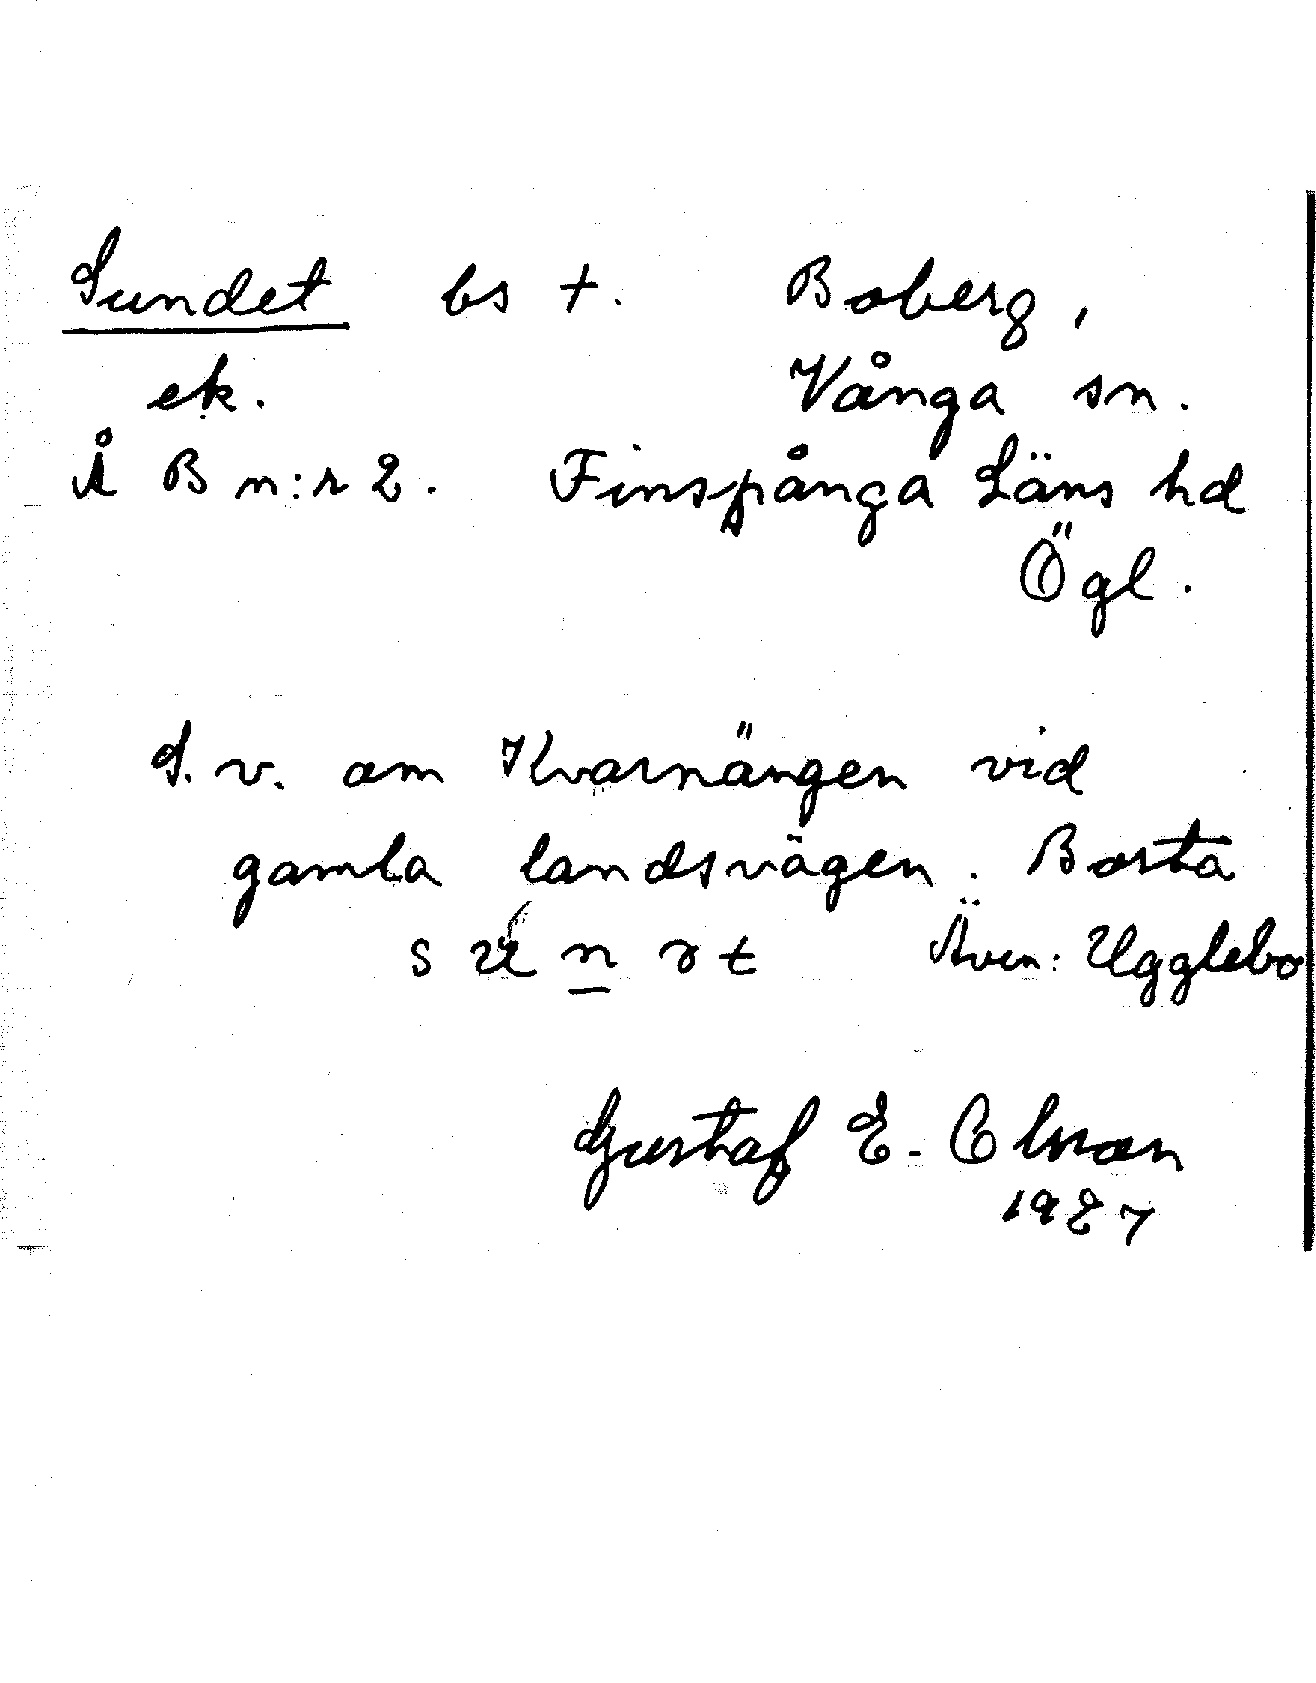 Sundet bs +. Boberg,
ek. Vånga sn.
Å B n:r 2. Finspånga Läns hd
Ögl.
S. v. om Kvarnängen vid
gamla landsvägen. Borta
Även: Ugglebo
Gustaf E. Olsson
1927